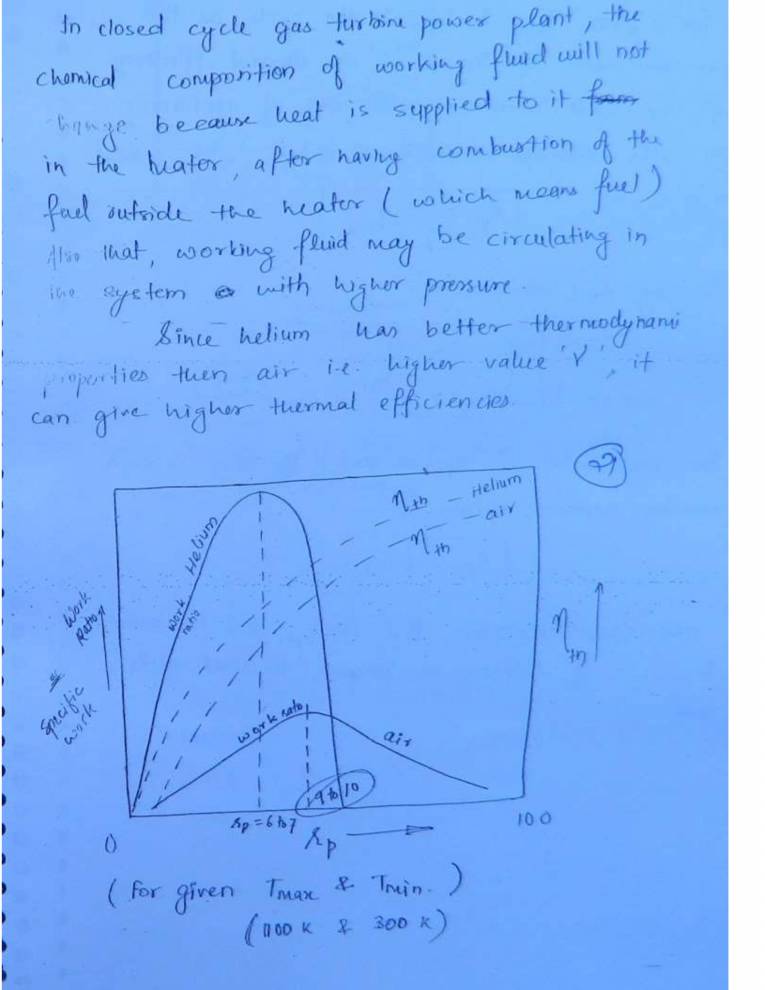 In closed cycle gas turbine power plant, the
chemical composition of working fluid will not
change because heat is supplied to it
in the heater, after having combustion of the
fuel outside the heater (which means fuel)
Also that, working fluid may be circulating in
the system with higher pressure.
Since helium has better thermodynami
properties then air i.e. higher value 'γ', it
can give higher thermal efficiencies.
29
ηth - Helium
ηth - air
Helium
work ratio
Work Ratio
Specific work
ηth
work ratio
air
9 to 10
rp = 6 to 7
0
rp
100
(for given Tmax & Tmin.)
(1100 K & 300 K)